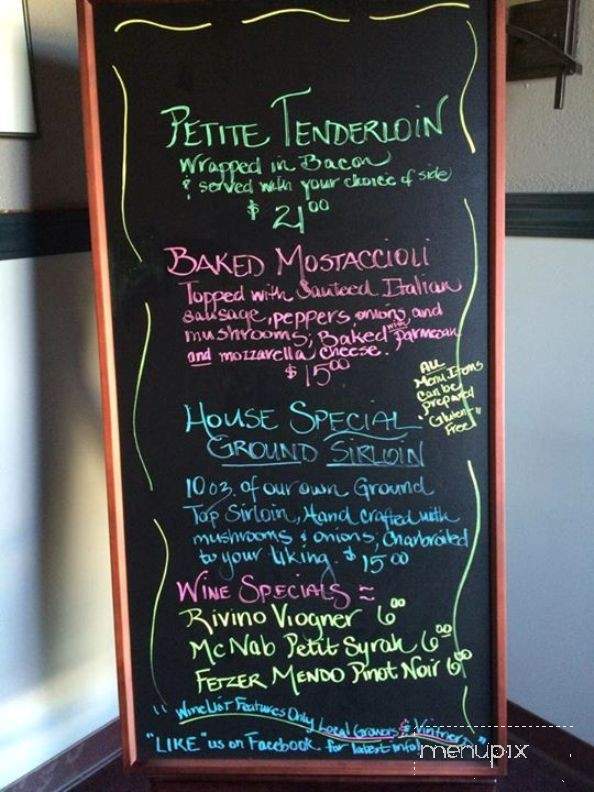 PETITE TENDERLOIN
Wrapped in Bacon
& served with your choice of side
$ 21 00
BAKED MOSTACCIOLI
Topped with Sauteed Italian
sausage, peppers, onions, and
mushrooms, Baked with Parmesan
and mozzarella cheese.
$ 15 00
ALL
Menu Items
can be
prepared
"Gluten"
Free
HOUSE SPECIAL
GROUND SIRLOIN
10 oz. of our own Ground
Top Sirloin, Hand crafted with
mushrooms & onions, Charbroiled
to your liking. $ 15 00
WINE SPECIALS
Rivino Viogner 6 00
McNab Petit Syrah 6 00
FETZER MENDO Pinot Noir 6 00
"Wine List Features Only Local Growers & Vintners"
"LIKE" us on Facebook for latest info!
menupix